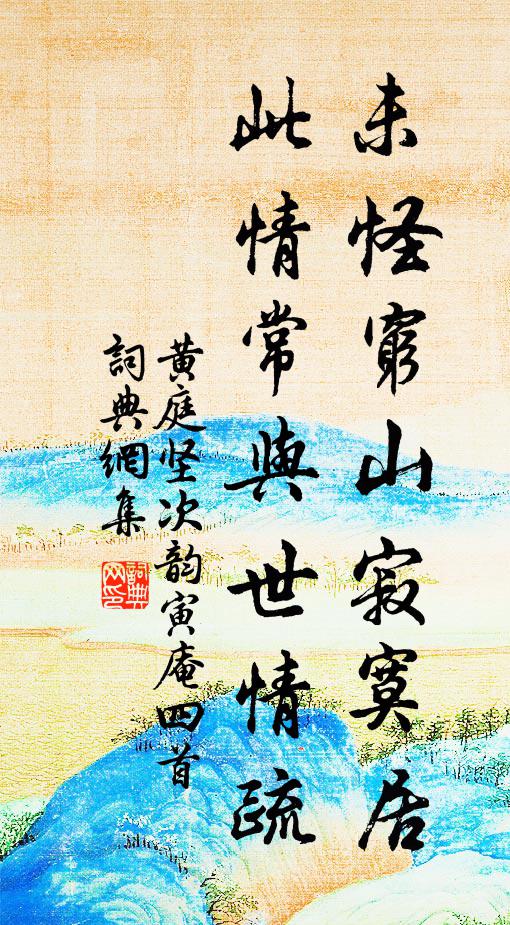 未怪窮山寂寞居
此情常與世情疏
黄庭坚次韵寅庵四首
詞典網集
詞典网印